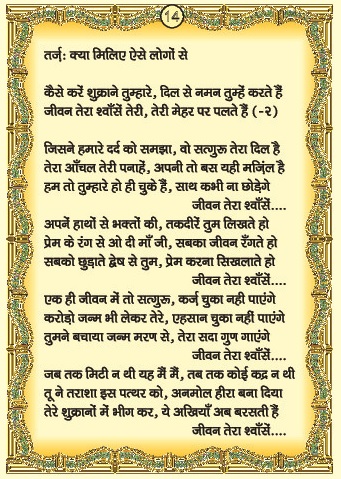 14
तर्ज़: क्या मिलिए ऐसे लोगों से
कैसे करें शुक्राने तुम्हारे, दिल से नमन तुम्हें करते हैं
जीवन तेरा श्वाँसें तेरी, तेरी मेहर पर पलते हैं (-२)
जिसने हमारे दर्द को समझा, वो सत्गुरू तेरा दिल है
तेरा आँचल तेरी पनाहें, अपनी तो बस यही मज़िंल है
हम तो तुम्हारे हो ही चुके हैं, साथ कभी ना छोड़ेगे
जीवन तेरा श्वाँसें....
अपनें हाथों से भक्तों की, तकदीरें तुम लिखते हो
प्रेम के रंग से ओ दी माँ जी, सबका जीवन रँगते हो
सबको छुड़ाते द्वेष से तुम, प्रेम करना सिखलाते हो
जीवन तेरा श्वाँसें....
एक ही जीवन में तो सत्गुरू, कर्ज़ चुका नही पाएंगे
करोड़ो जन्म भी लेकर तेरे, एहसान चुका नहीं पाएंगे
तुमने बचाया जन्म मरण से, तेरा सदा गुण गाएंगे
जीवन तेरा श्वाँसें....
जब तक मिटी न थी यह मैं मैं, तब तक कोई कद्र न थी
तू ने तराशा इस पत्थर को, अनमोल हीरा बना दिया
तेरे शुक्रानों में भीग कर, ये अखियाँ अब बरसती हैं
जीवन तेरा श्वाँसें....